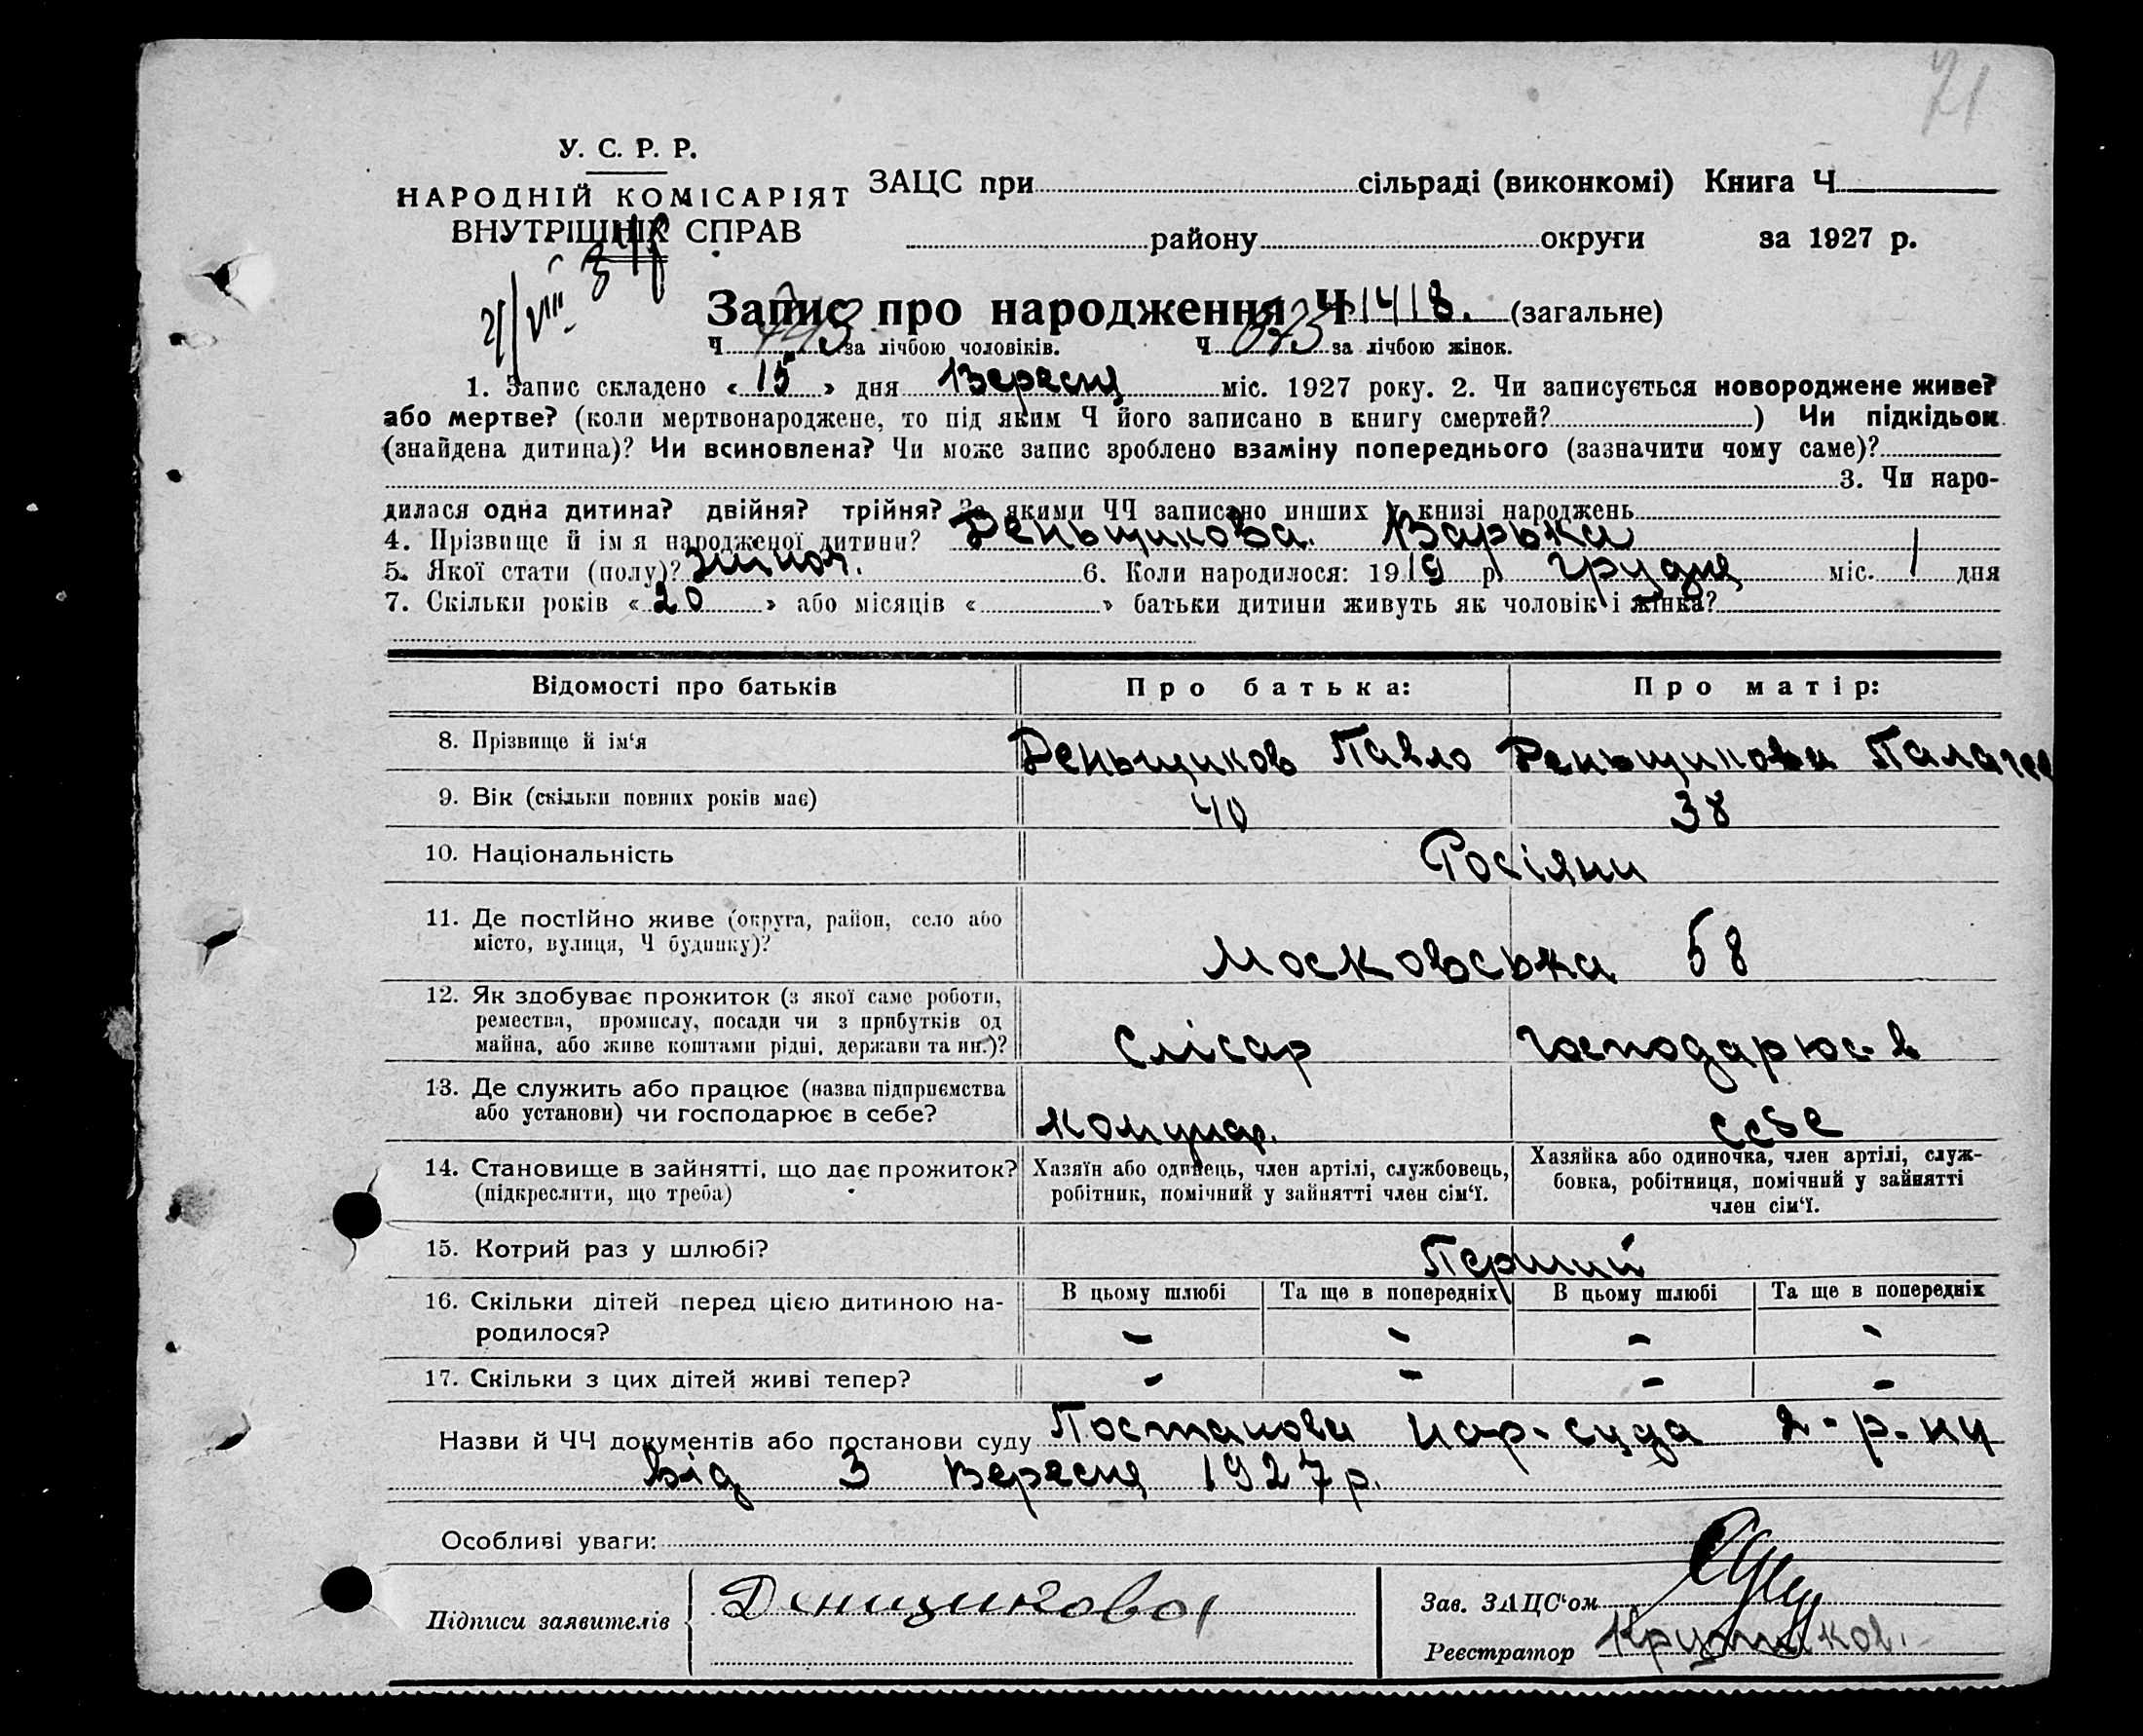 71
У. С. Р. Р.
НАРОДНІЙ КОМІСАРІЯТ
ВНУТРІШНІХ СПРАВ
ЗАЦС при сільраді (виконкомі) Книга Ч
району округи за 1927 р.
Запис про народження Ч 1418. (загальне)
Ч за лічбою чоловіків. Ч за лічбою жінок.
1. Запис складено « 15 » дня Вересня міс. 1927 року. 2. Чи записується новороджене живе?
або мертве? (коли мертвонароджене, то під яким Ч його записано в книгу смертей? ) Чи підкідьок
(знайдена дитина)? Чи всиновлена? Чи може запис зроблено взаміну попереднього (зазначити чому саме)?
3. Чи наро-
дилася одна дитина? двійня? трійня? За якими ЧЧ записано инших у книзі народжень
4. Прізвище й ім я народженої дитини? Деньщикова. Варька
5. Якої стати (полу)? жіноч. 6. Коли народилося: 1919 р. грудня міс. 1 дня
7. Скільки років « 20 » або місяців « » батьки дитини живуть як чоловік і жінка?
Відомості про батьків Про батька: Про матір:
8. Прізвище й ім‘я Деньщиков Павло Деньщикова Палагея
9. Вік (скільки повних років має) 40 38
10. Національність Росіяни
11. Де постійно живе (округа, район, село або
місто, вулиця, Ч будинку)? Московська 58
12. Як здобуває прожиток (з якої саме роботи,
ремества, промислу, посади чи з прибутків од
майна, або живе коштами рідні, держави та ин.)? Слісар господарює в
13. Де служить або працює (назва підприємства
або установи) чи господарює в себе? комунар. себе
14. Становище в зайнятті, що дає прожиток?
(підкреслити, що треба)
Хазяїн або одинець, член артілі, службовець,
робітник, помічний у зайнятті член сім‘ї.
Хазяйка або одиночка, член артілі, служ-
бовка, робітниця, помічний у зайнятті
член сім‘ї.
15. Котрий раз у шлюбі? Перший
16. Скільки дітей перед цією дитиною на-
родилося?
В цьому шлюбі Та ще в попередніх В цьому шлюбі Та ще в попередніх
- - - -
17. Скільки з цих дітей живі тепер? - - - -
Назви й ЧЧ документів або постанови суду Постанова нар-суда 2-р-ну
від 3 Вересня 1927 р.
Особливі уваги:
Підписи заявителів Денщикова
Зав. ЗАЦС‘ом
Реєстратор